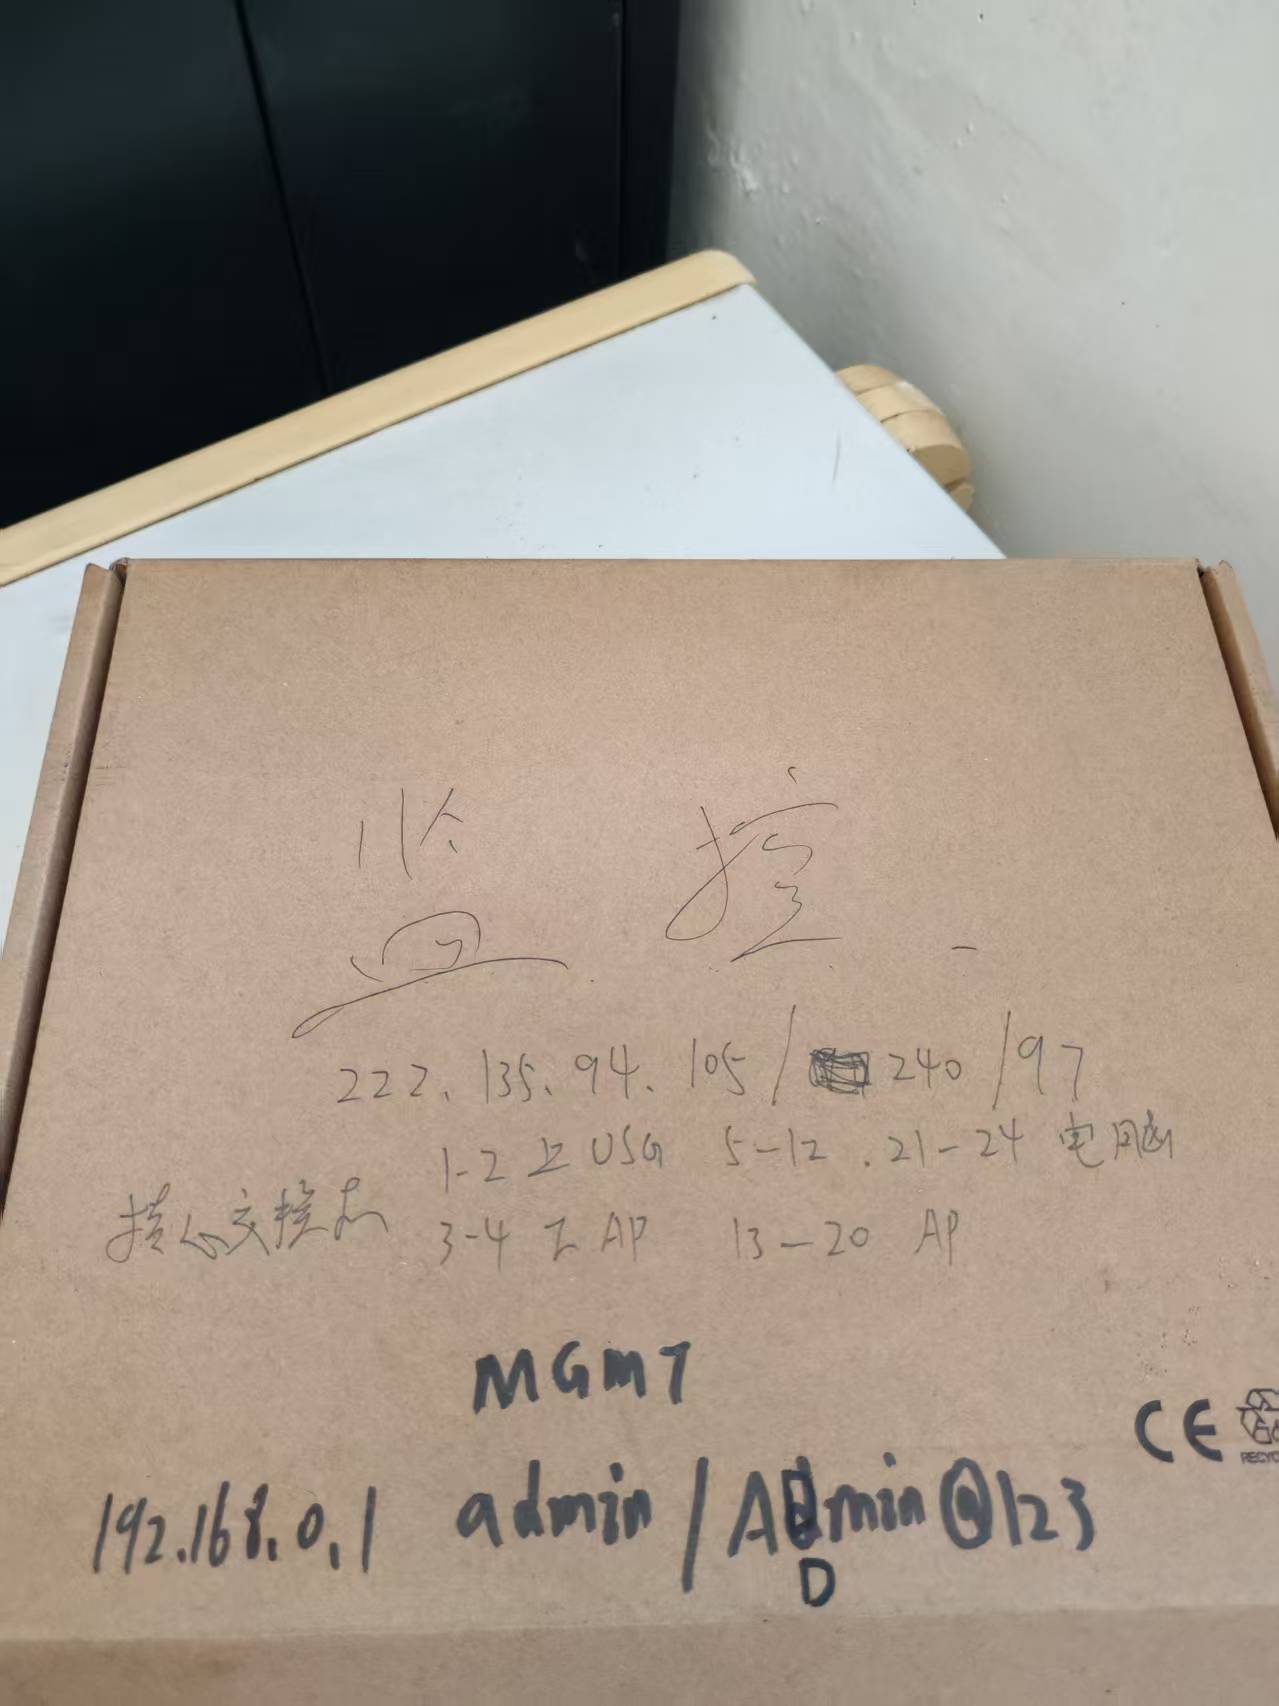 监 控
222.135.94.105/240/97
1-2 上USG 5-12.21-24 电脑
核心交换机 3-4 上AP 13-20 AP
MGMT
CE
RECYC
192.168.0.1 admin/ADmin@123
D